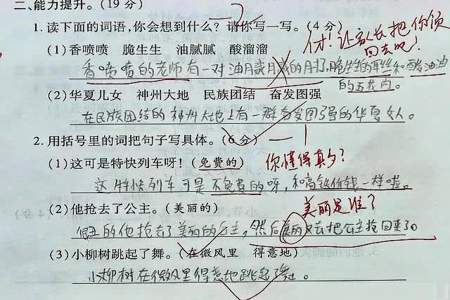 二、能力提升。(19分)
1.读下面的词语,你会想到什么?请你写一写。(4分)
(1)香喷喷 脆生生 油腻腻 酸溜溜
香喷喷的老师有一对油腻腻的
(2)华夏儿女 神州大地 民族团结 奋发图强
在民族团结的神州大地上有一群奋发图强的华夏女人。
2.用括号里的词把句子写具体。(6分)
(1)这可是特快列车呀!(免费的)
你懂得真多?
这特快列车可是不免费的呀,和高铁价钱一样啦。
美丽是谁?
(2)他抢去了公主。(美丽的)
他抢去了美丽的公主,然后美丽又去把公主抢回来了。
(3)小柳树跳起了舞。(在微风里 得意地)
小柳树在微风里得意地跳起了舞。